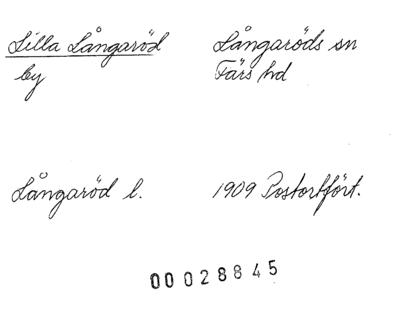 Lilla Långaröd
by
Långaröds sn
Färs hd
Långaröd l.
1909 Postortfört.
00028845